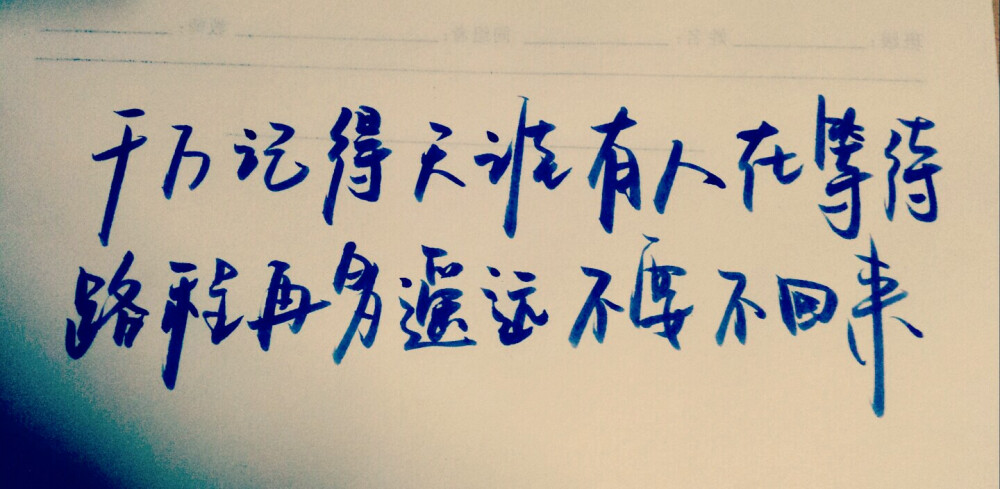 千万记得天涯有人在等待
路程再多遥远不要不回来